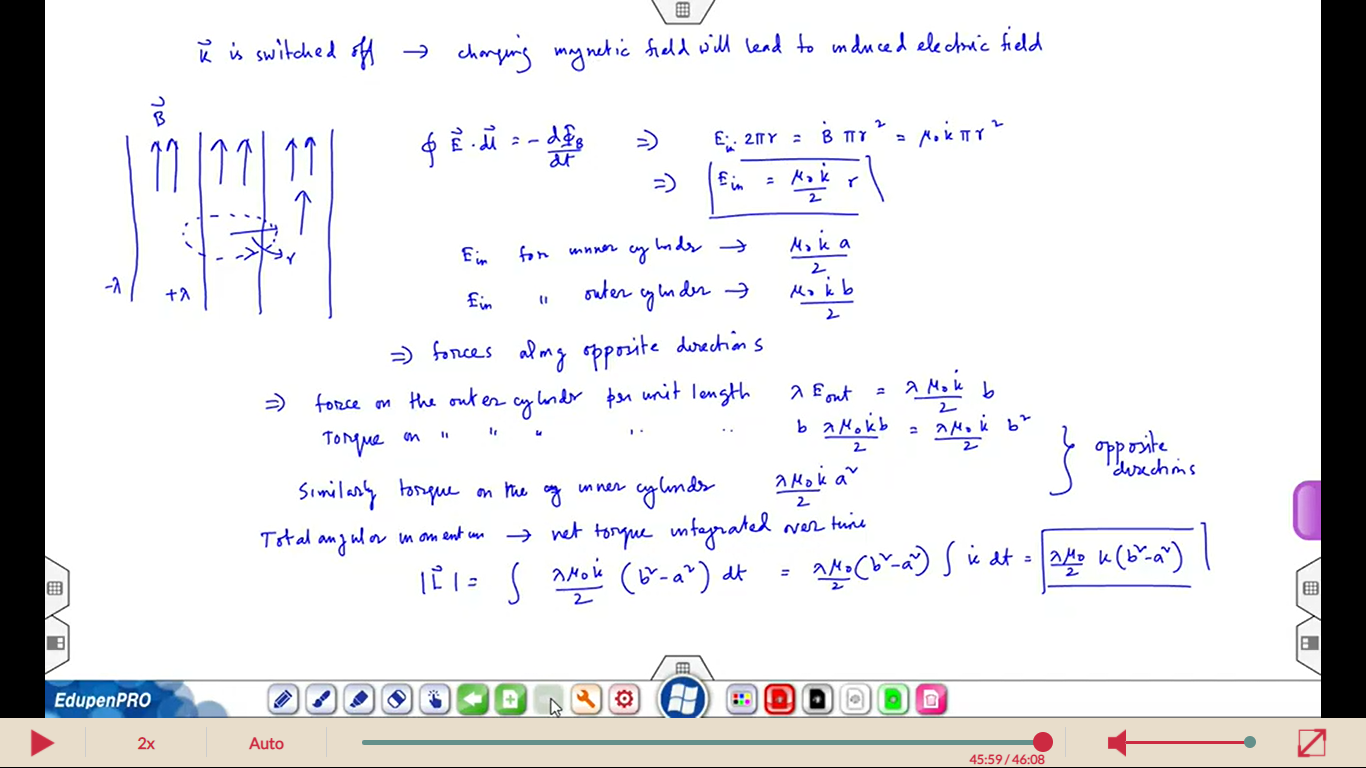 k⃗ is switched off → changing magnetic field will lead to induced electric field
B⃗
∮ E⃗ · dl⃗ = - dΦ_B/dt ⇒ E_in · 2πr = Ḃ πr² = μ₀k̇πr²
⇒ E_in = μ₀k̇/2 r
r
-λ +λ
E_in for inner cylinder → μ₀k̇a/2
E_in " outer cylinder → μ₀k̇b/2
⇒ forces along opposite directions
⇒ force on the outer cylinder per unit length λE_out = λμ₀k̇/2 b
Torque on " " " " " b λμ₀k̇b/2 = λμ₀k̇/2 b²
} opposite directions
Similarly torque on the inner cylinder λμ₀k̇a²/2
Total angular momentum → net torque integrated over time
|L⃗| = ∫ λμ₀k̇/2 (b²-a²) dt = λμ₀/2 (b²-a²) ∫ k̇ dt = λμ₀/2 k(b²-a²)
EdupenPRO
2x Auto 45:59 / 46:08